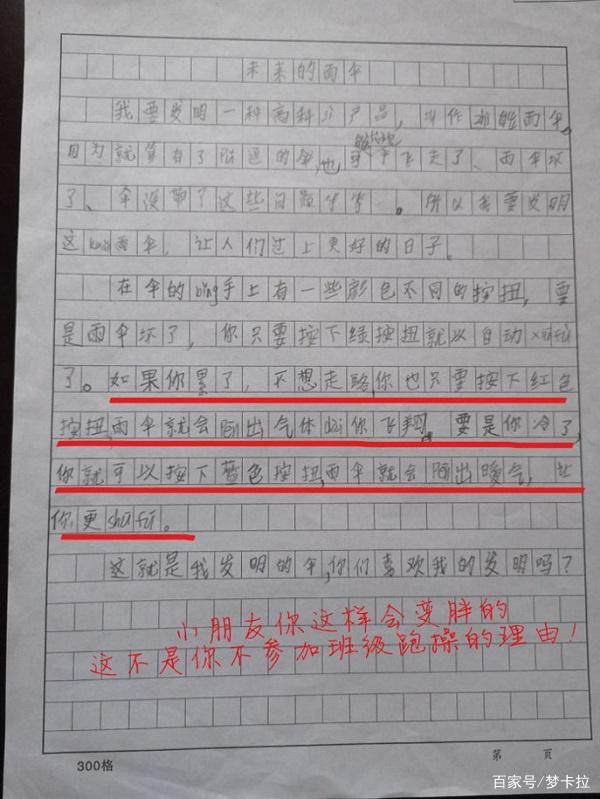 未来的雨伞
我要发明一种高科技产品，叫作智能雨伞。
因为就算有了普通的伞，也 了、雨伞坏
了、伞没带了这些问题等等。所以我要发明
这 雨伞，让人们过上更好的日子。
在伞的bing手上有一些颜色不同的按扭，要
是雨伞坏了，你只要按下绿按扭就以自动xiūfù
了。如果你累了，不想走路，你也只要按下红色
按扭，雨伞就会 出气体dài你飞翔。要是你冷了，
你就可以按下蓝色按扭，雨伞就会 出暖气，让
你更shūfu。
这就是我发明的伞，你们喜欢我的发明吗？
小朋友你这样会变胖的
这不是你不参加班级跑操的理由！
300格
第 页
百家号/梦卡拉